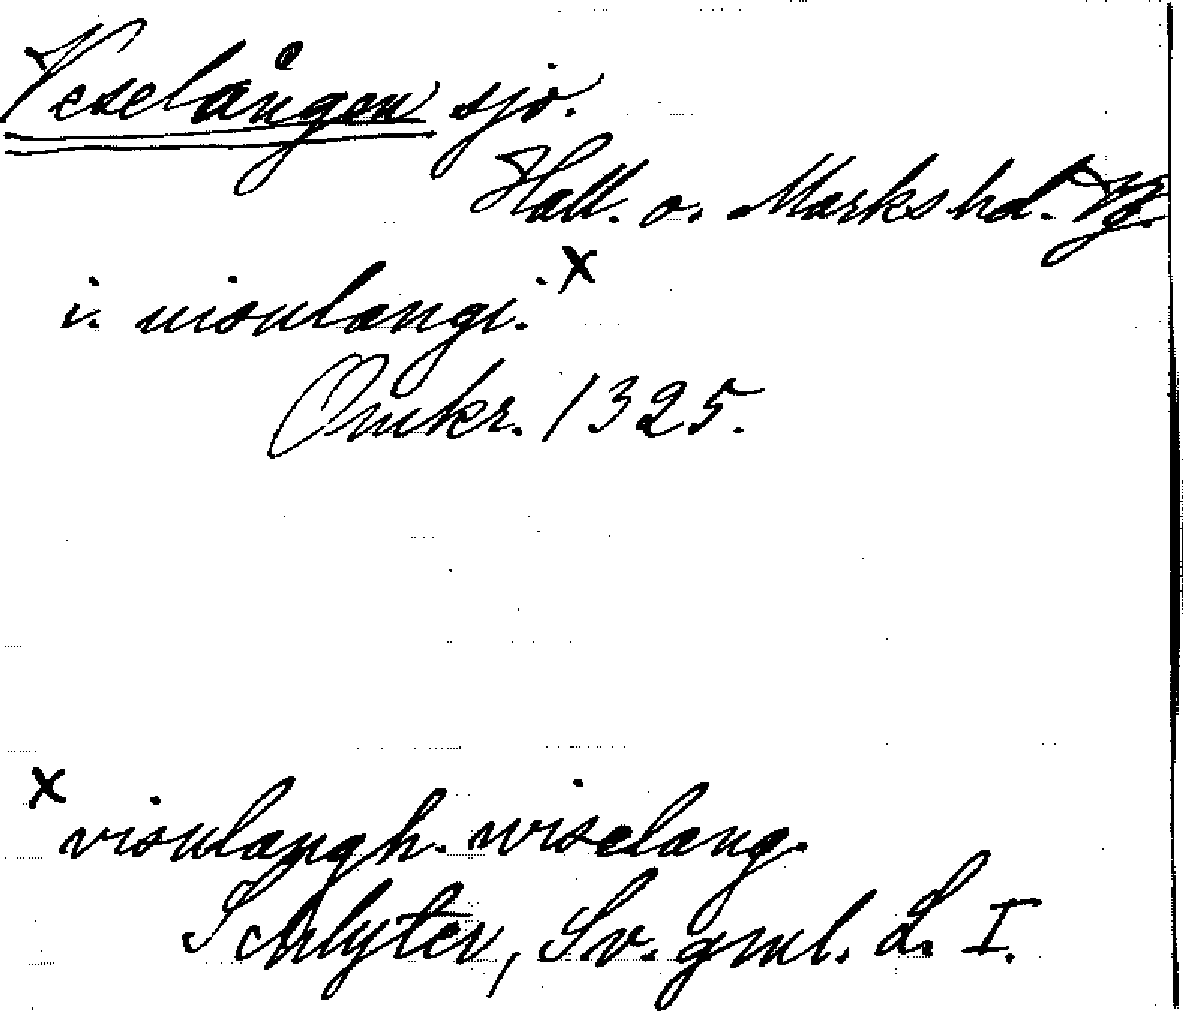 Veselången sjö.
Hall. o. Marks hd. Vg.
i. uisulangi. x
Omkr. 1325.
x visulangh. wiselang.
Schlyter, Sv. gml. L. I.